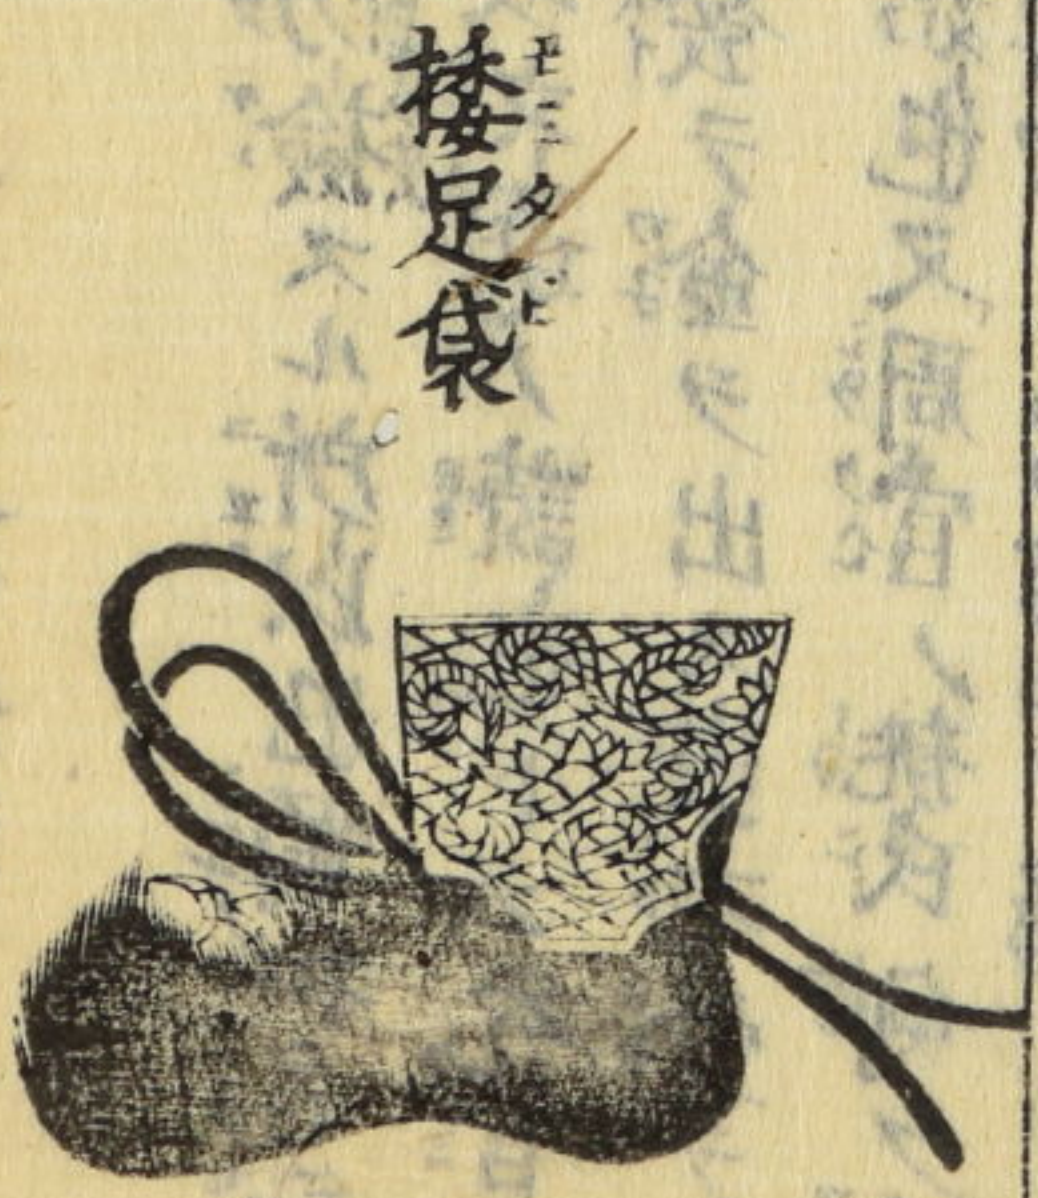 捼足袋
モミタビ